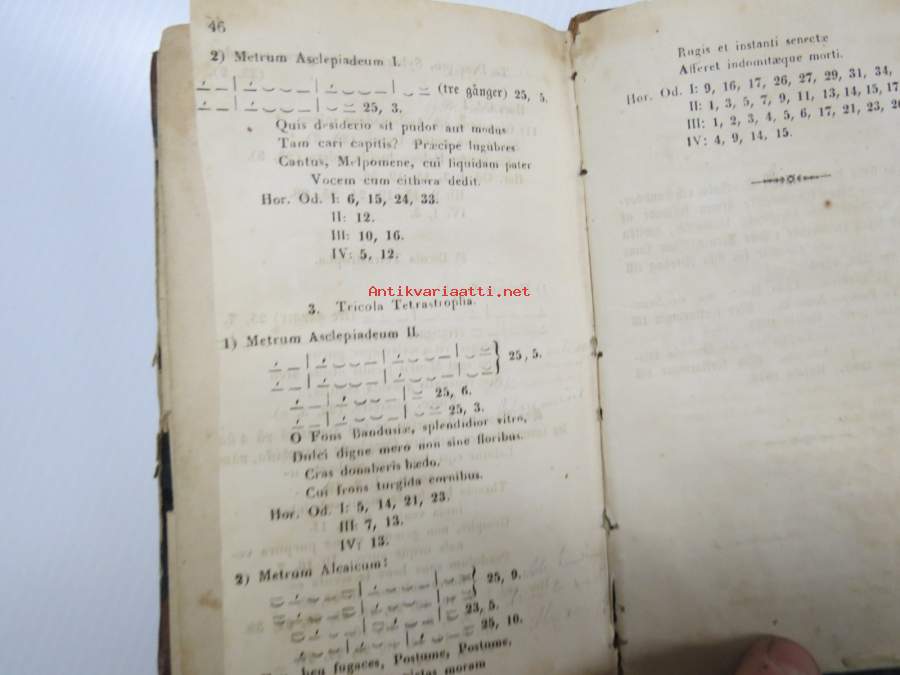 46
2) Metrum Asclepiadeum I.
(tre gånger) 25, 5.
25, 3.
Quis desiderio sit pudor aut modus
Tam cari capitis? Præcipe lugubres
Cantus, Melpomene, cui liquidam pater
Vocem cum cithara dedit.
Hor. Od. I: 6, 15, 24, 33.
II: 12.
III: 10, 16.
IV: 5, 12.
Antikvariaatti.net
3. Tricola Tetrastropha.
1) Metrum Asclepiadeum II.
25, 5.
25, 6.
25, 3.
O Fons Bandusiæ, splendidior vitro,
Dulci digne mero non sine floribus.
Cras donaberis hædo.
Cui frons turgida cornibus.
Hor. Od. I: 5, 14, 21, 23.
III: 7, 13.
IV: 13.
2) Metrum Alcaicum:
25, 9.
23, 5.
25, 10.
heu fugaces, Postume, Postume,
moram
Rugis et instanti senectæ
Afferet indomitæque morti.
Hor. Od. I: 9, 16, 17, 26, 27, 29, 31, 34,
II: 1, 3, 5, 7, 9, 11, 13, 14, 15, 17
III: 1, 2, 3, 4, 5, 6, 17, 21, 23,
IV: 4, 9, 14, 15.